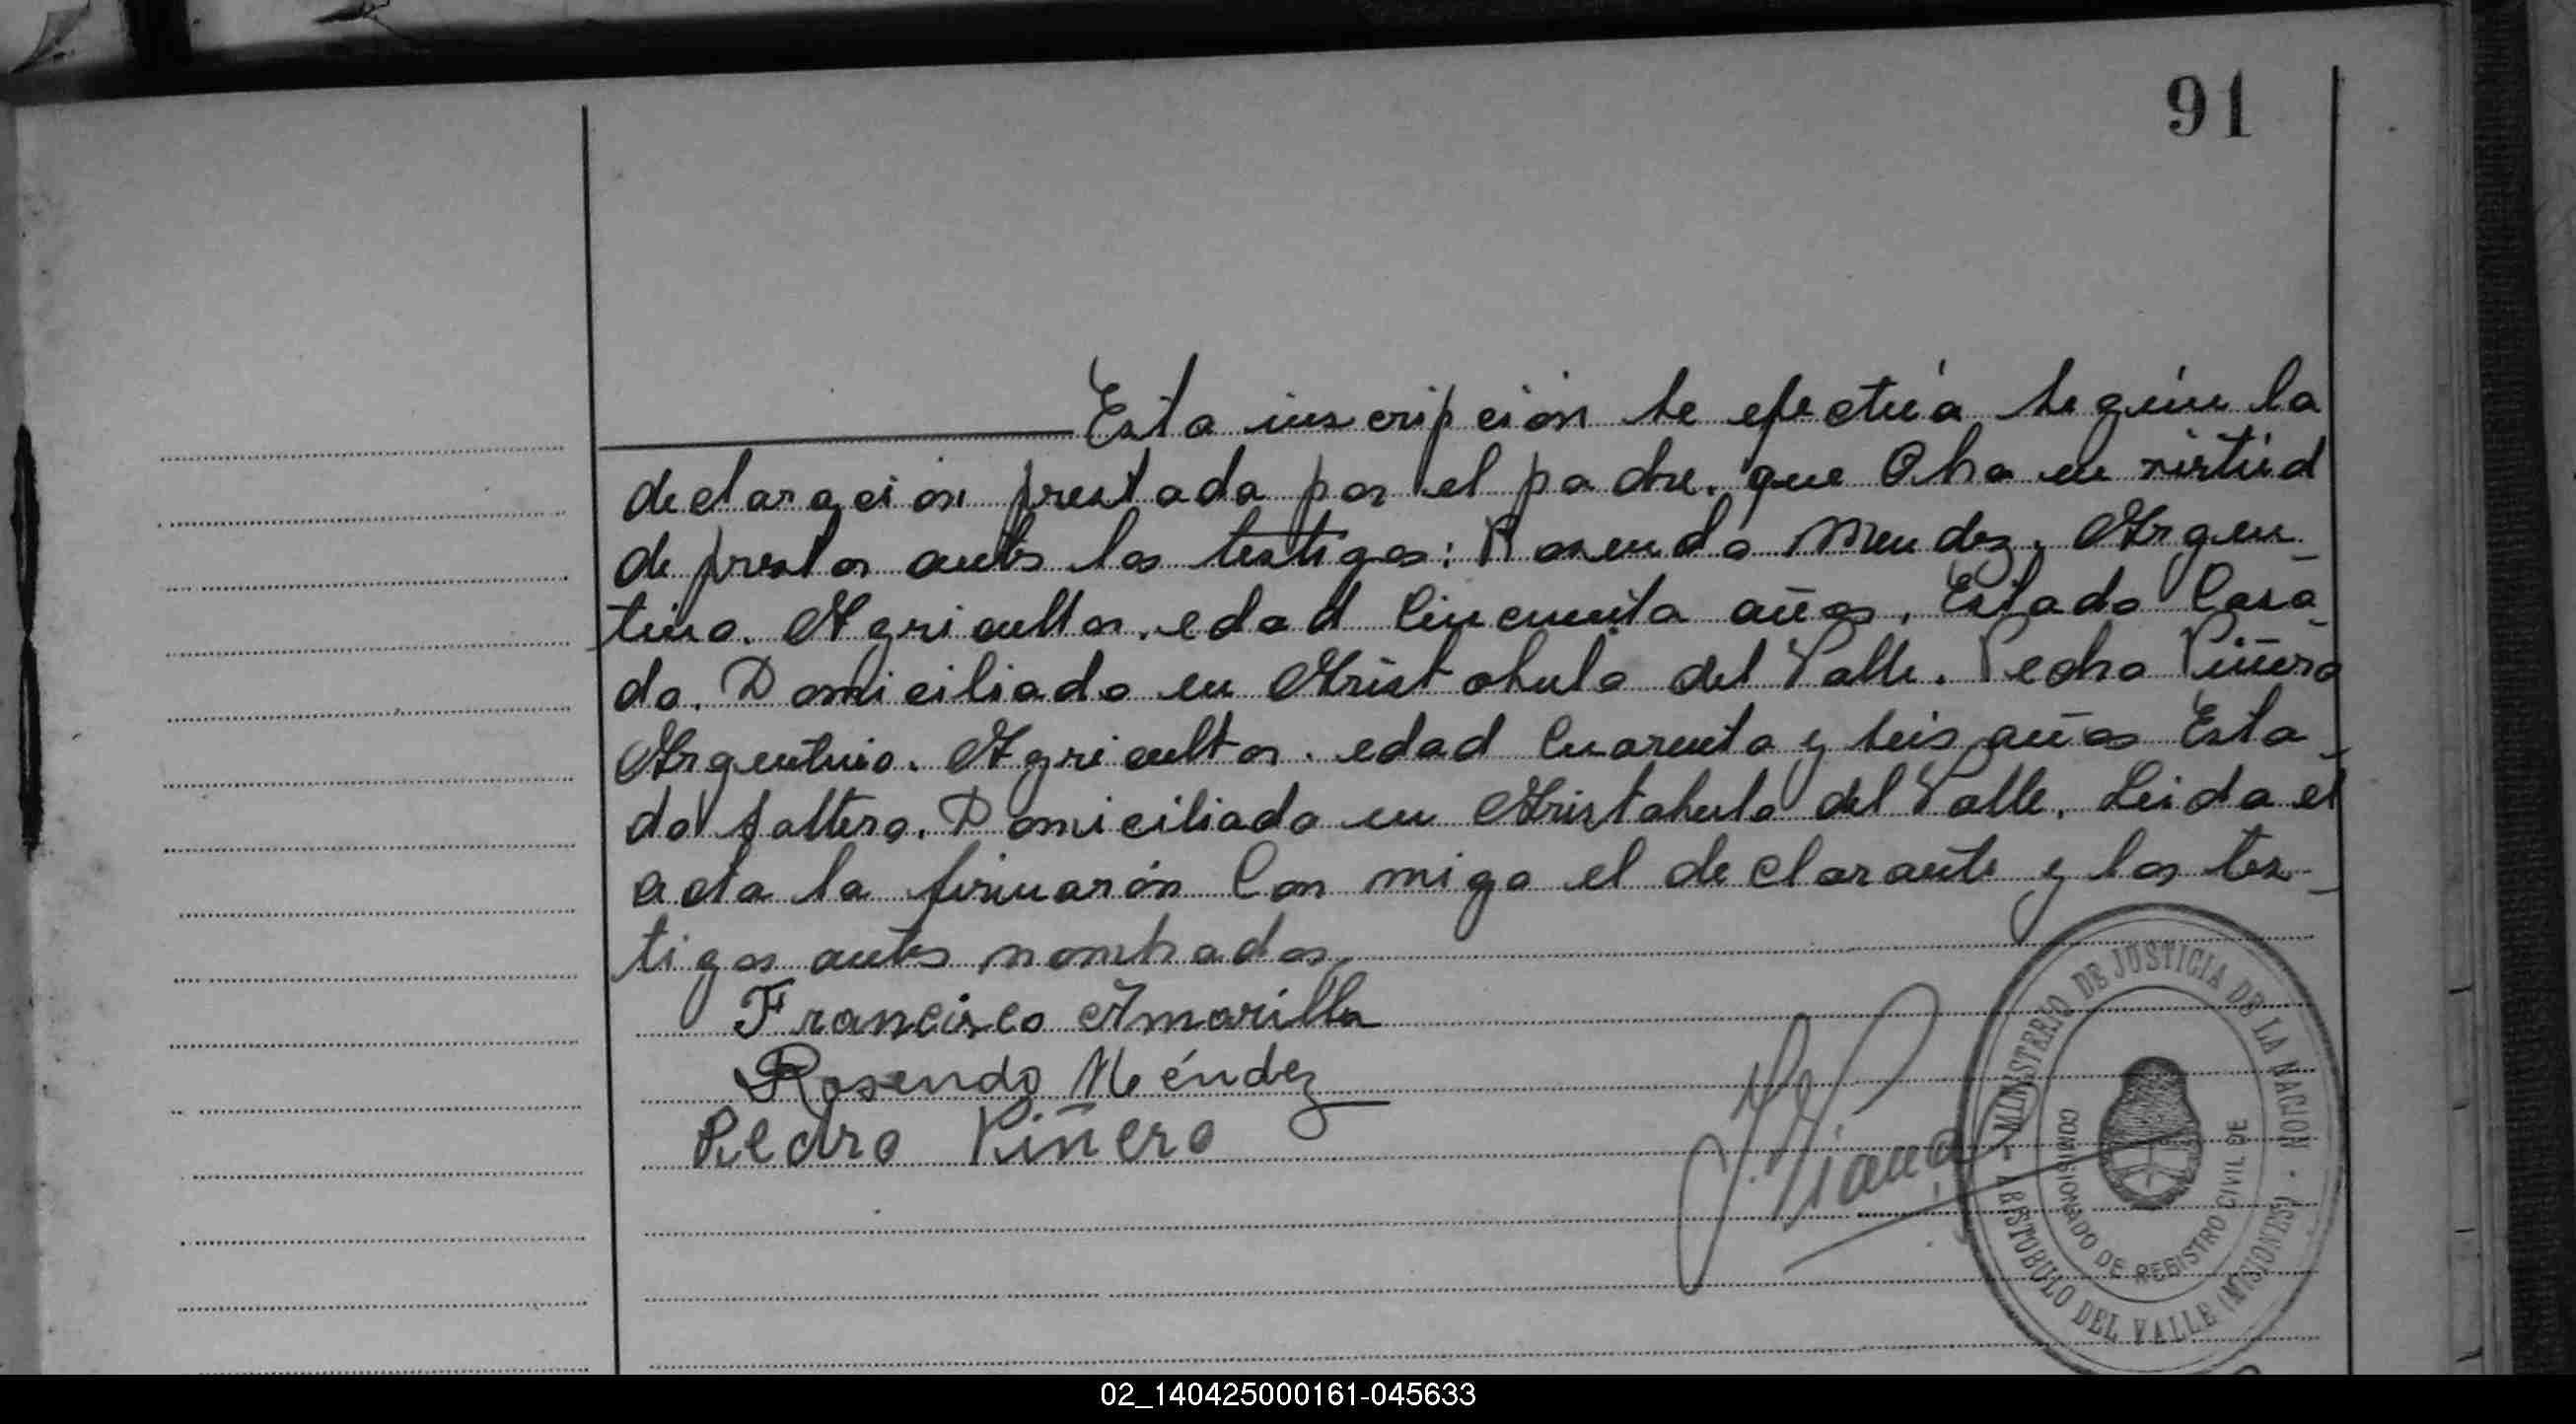 91
Esta inscripción se efectúa según la
declaración prestada por el padre. que Obra en virtúd
de prestar ante los testigos: Rosendo Mendez, Argen-
tino. Agricultor. edad Cincuenta años, Estado Casa-
do. Domiciliado en Aristobulo del Valle. Pedro Piñero
Argentino. Agricultor. edad Cuarenta y seis años Esta-
do soltero. Domiciliado en Aristobulo del Valle. Leida el
acta la firmarón Con migo el declarante y los tes-
tigos antes nombrados.
Francisco Amarilla
Rosendo Méndez
Pedro Piñero
MINISTERIO DE JUSTICIA DE LA NACION - ARISTOBULO DEL VALLE (MISIONES)
COMISIONADO DE REGISTRO CIVIL DE
02_140425000161-045633